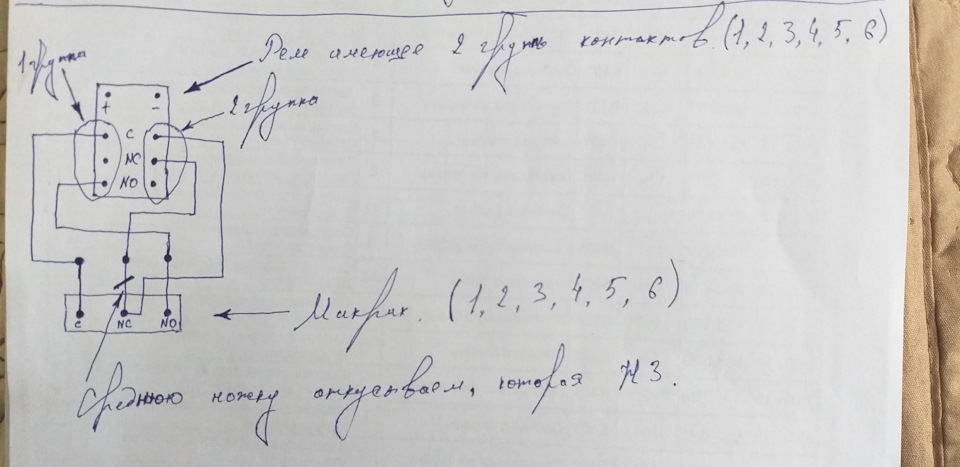 Реле имеющее 2 группы контактов. (1, 2, 3, 4, 5, 6)
1 группа
2 группа
+ -
C
NC
NO
C NC NO
Микрик. (1, 2, 3, 4, 5, 6)
Среднюю ножку откусываем, которая НЗ.